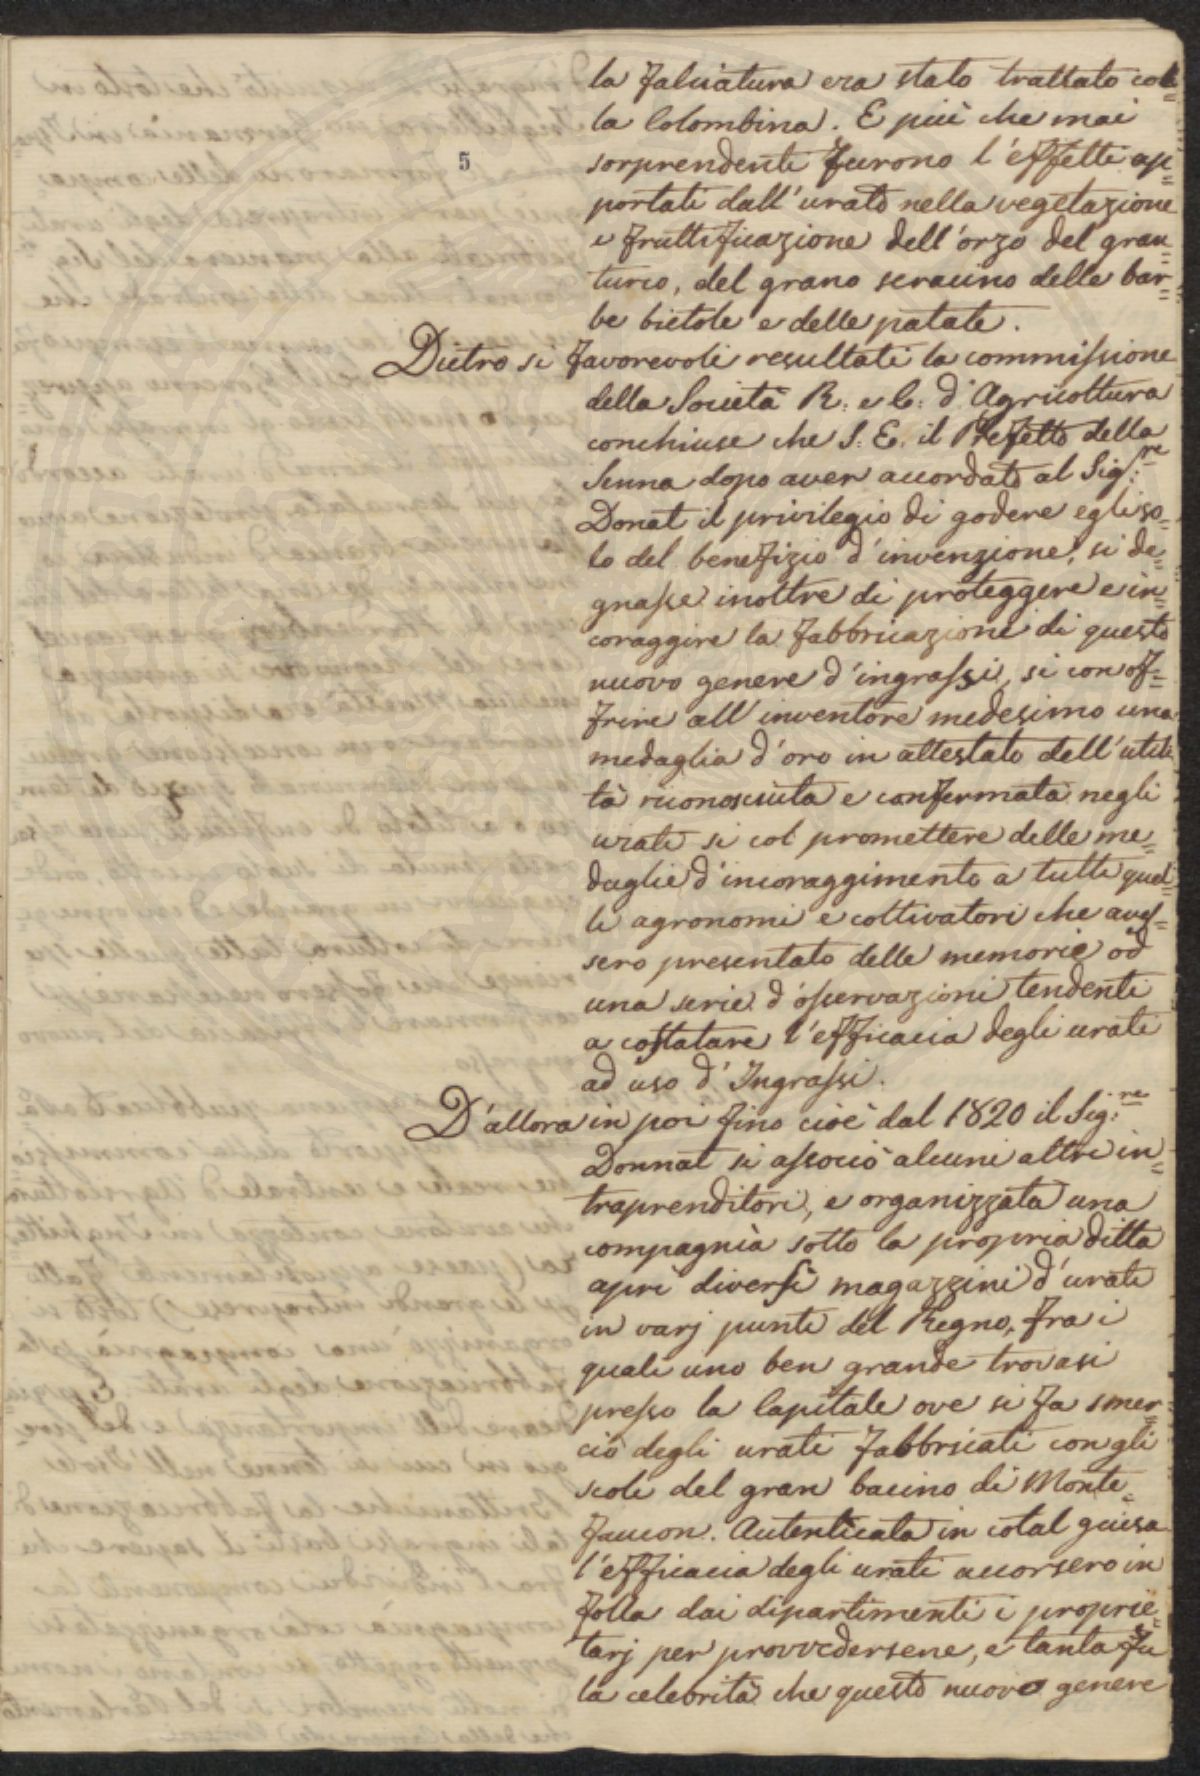 5
la falciatura era stato trattato col=
la Colombina. E più che mai
sorprendenti furono l'effetti ap=
portati dall'urato nella vegetazione
e fruttificazione dell'orzo del gran=
turco, del grano seracino delle bar=
be bietole e delle patate.
Dietro si favorevoli resultati la commissione
della Società R. e C. d'Agricoltura
conchiuse che S. E. il Prefetto della
Senna dopo aver accordato al Sig.re
Donat il privilegio di godere egli so=
lo del benefizio d'invenzione, si de=
gnasse inoltre di proteggere e in=
coraggire la fabbricazione di questo
nuovo genere d'ingrassi, si con of=
frire all'inventore medesimo una
medaglia d'oro in attestato dell'utili
tà riconosciuta e confermata negli
urati si col promettere delle me=
daglie d'incoraggimento a tutti quel=
li agronomi e coltivatori che aves=
sero presentato delle memorie od
una serie d'osservazioni tendenti
a costatare l'efficacia degli urati
ad uso d'Ingrassi.
D'allora in poi fino cioè dal 1820 il Sig.re
Donnat si associò alcuni altri in=
traprenditori, e organizzata una
compagnia sotto la propria ditta
aprì diversi magazzini d'urati
in varj punti del Regno, fra i
quali uno ben grande trovasi
presso la Capitale ove si fa smer=
cio degli urati fabbricati con gli
scoli del gran bacino di Monte=
faucon. Autenticata in cotal guisa
l'efficacia degli urati accorsero in
folla dai dipartimenti i proprie=
tarj per provvedersene, e tanta fu
la celebrità che questo nuovo genere